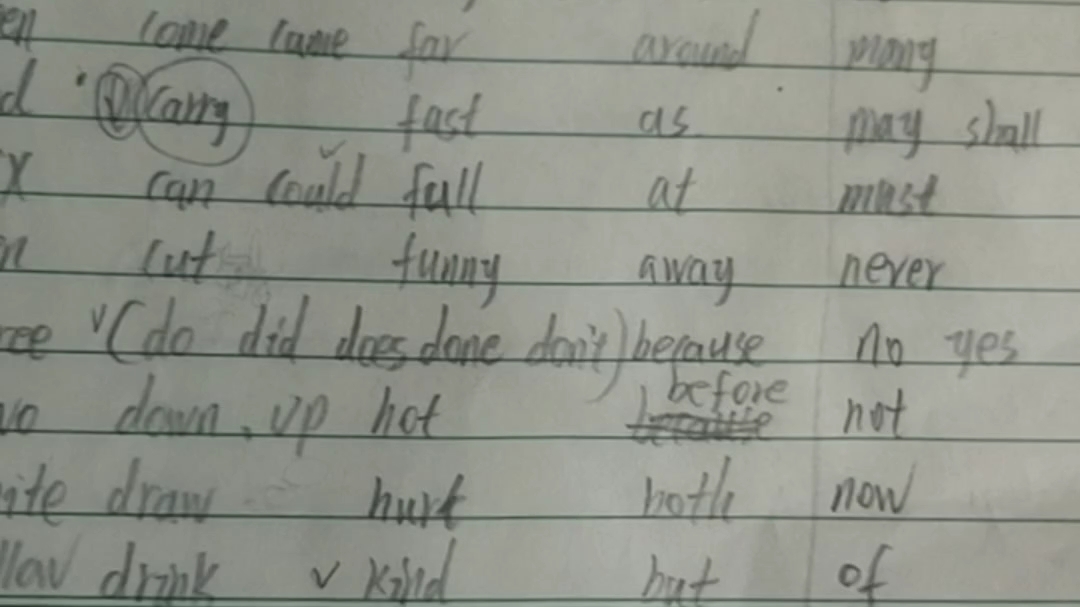 come came far around many
carry fast as may shall
can could full at must
cut funny away never
(do did does done don't) because no yes
down. up hot before not
draw hurt both now
drink kind but of